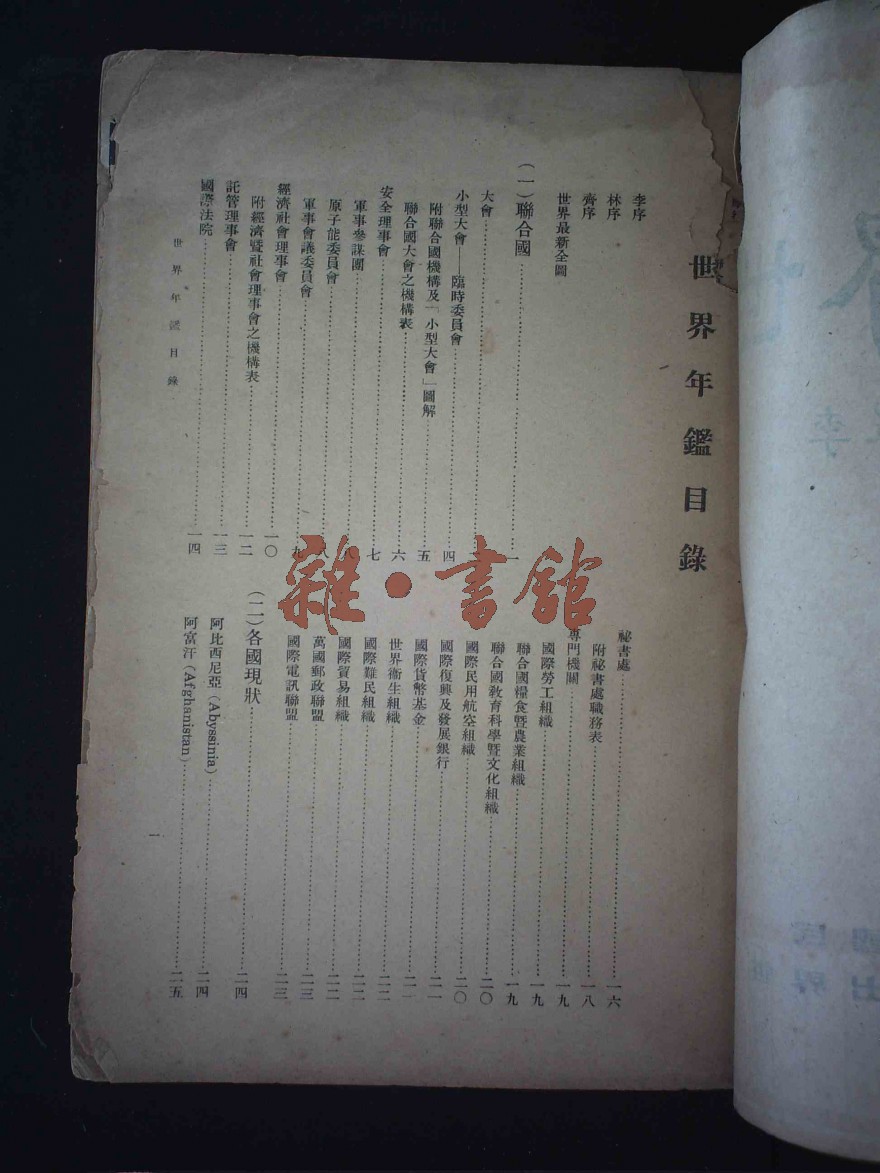 世界年鑑目錄
李序
林序
齊序
世界最新全圖
（一）聯合國……一
大會……
小型大會——臨時委員會……四
附聯合國機構及「小型大會」圖解……五
聯合國大會之機構表……六
安全理事會……七
軍事參謀團……八
原子能委員會……八
軍事會議委員會……九
經濟社會理事會……一〇
附經濟暨社會理事會之機構表……一二
託管理事會……一三
國際法院……一四
秘書處……一六
附秘書處職務表……一八
專門機關……一九
國際勞工組織……一九
聯合國糧食暨農業組織……一九
聯合國教育科學暨文化組織……二〇
國際民用航空組織……二〇
國際復興及發展銀行……二一
國際貨幣基金……二一
世界衞生組織……二二
國際難民組織……二二
國際貿易組織……二二
萬國郵政聯盟……二三
國際電訊聯盟……二三
（二）各國現狀……二四
阿比西尼亞（Abyssinia）……二四
阿富汗（Afghanistan）……二五
世界年鑑目錄
一
雜·書館